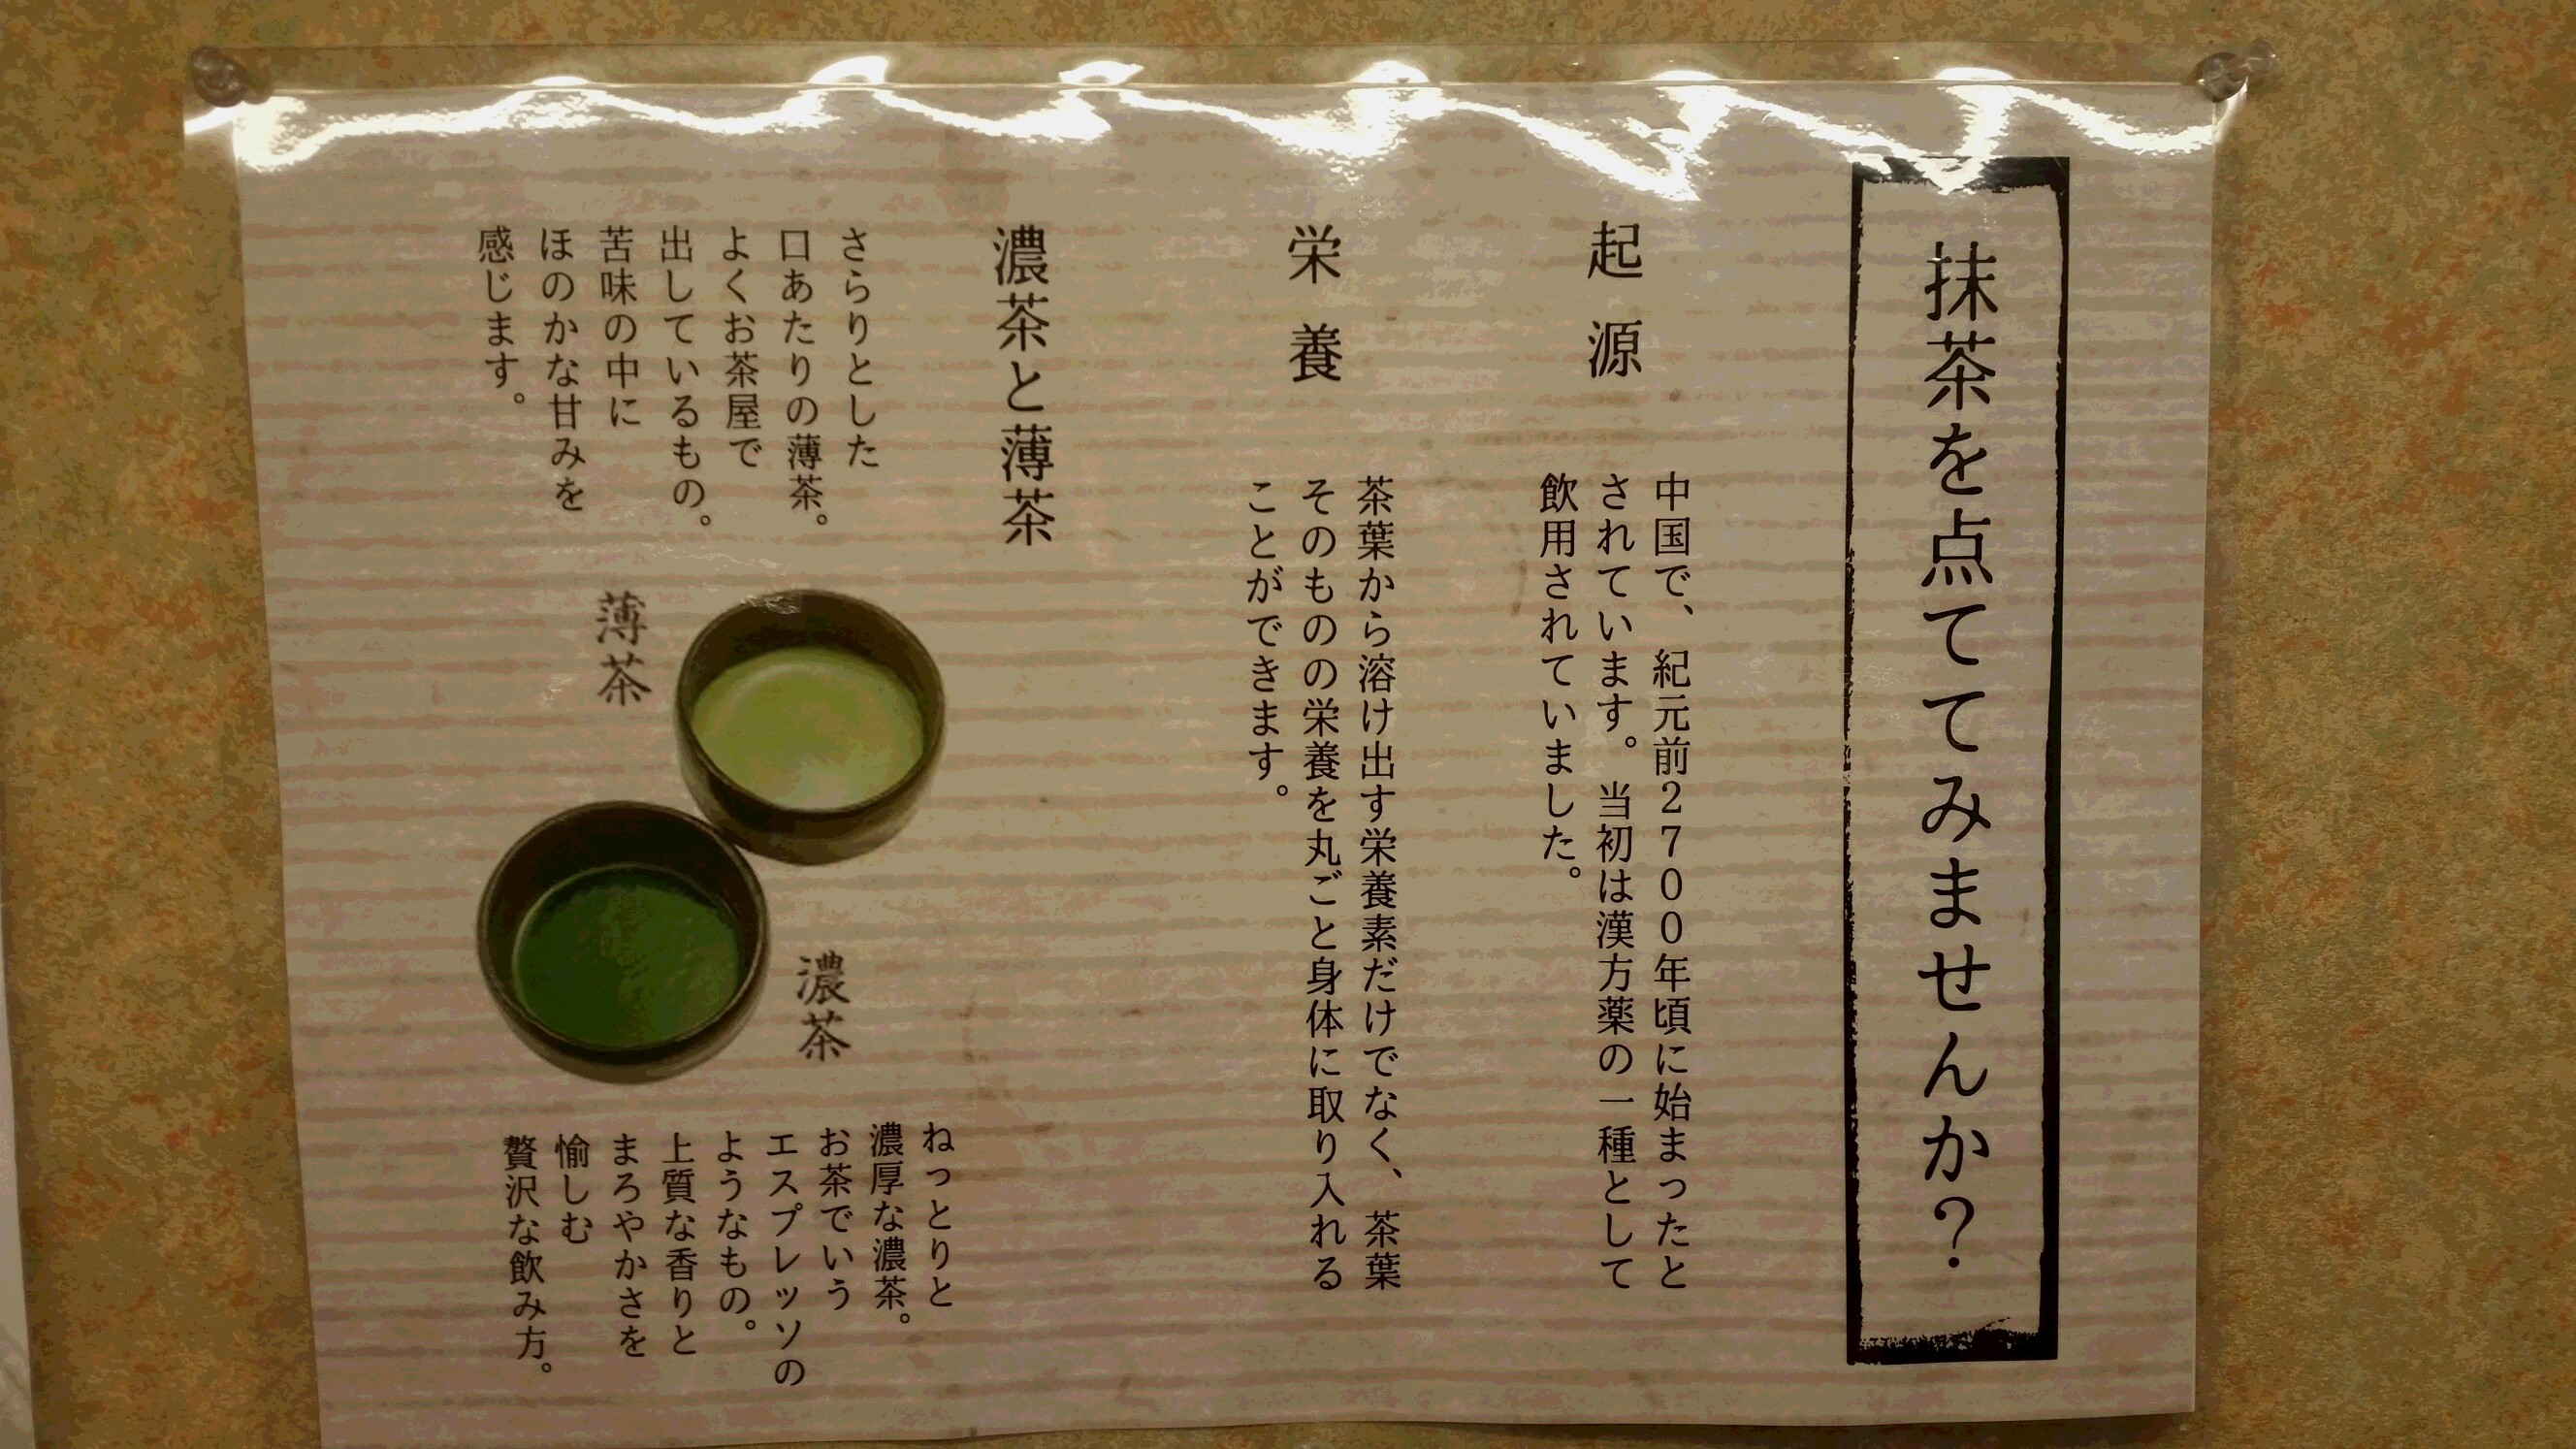 抹茶を点ててみませんか？
起源
中国で、紀元前２７００年頃に始まったと
されています。当初は漢方薬の一種として
飲用されていました。
栄養
茶葉から溶け出す栄養素だけでなく、茶葉
そのものの栄養を丸ごと身体に取り入れる
ことができます。
濃茶と薄茶
さらりとした
口あたりの薄茶。
よくお茶屋で
出しているもの。
苦味の中に
ほのかな甘みを
感じます。
薄茶
濃茶
ねっとりと
濃厚な濃茶。
お茶でいう
エスプレッソの
ようなもの。
上質な香りと
まろやかさを
愉しむ
贅沢な飲み方。